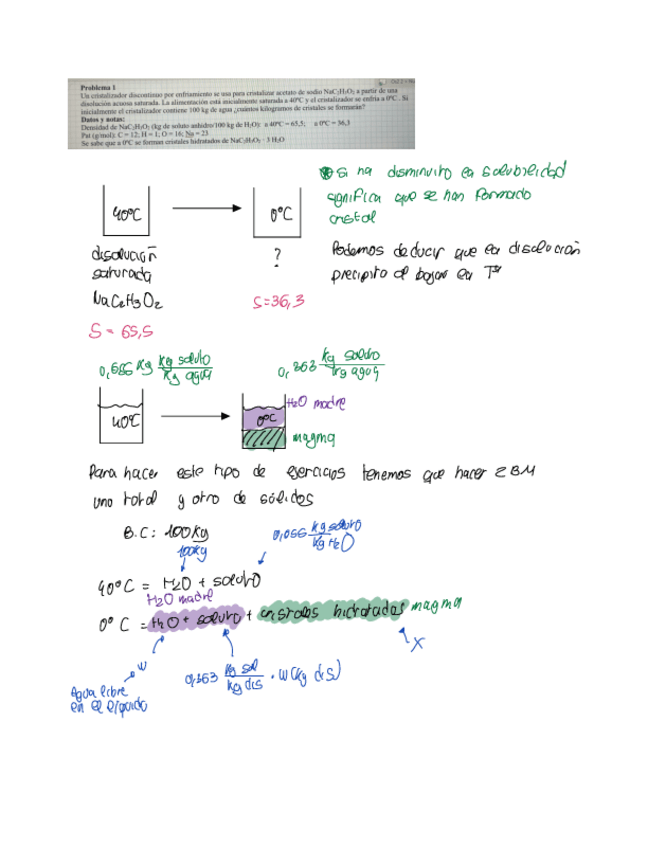 Problema 1
Un cristalizador discontinuo por enfriamiento se usa para cristalizar acetato de sodio NaC₂H₃O₂ a partir de una
disolución acuosa saturada. La alimentación está inicialmente saturada a 40ºC y el cristalizador se enfría a 0ºC. Si
inicialmente el cristalizador contiene 100 kg de agua ¿cuántos kilogramos de cristales se formarán?
Datos y notas:
Densidad de NaC₂H₃O₂ (kg de soluto anhidro/100 kg de H₂O): a 40ºC = 65,5; a 0ºC = 36,3
Pat (g/mol): C = 12; H = 1, O = 16; Na = 23
Se sabe que a 0ºC se forman cristales hidratados de NaC₂H₃O₂ · 3 H₂O
Si ha disminuito la solubilidad
significa que se han formado
cristal
40ºC
0ºC
disolución
saturada
?
Podemos deducir que la disolución
precipito al bajar la Tª
NaC2H3O2
S=36,3
S= 65,5
0,655 Kg kg soluto / Kg agua
0,363 kg soluto / kg agua
H2O madre
40ºC
0ºC
magma
Para hacer este tipo de ejercicios tenemos que hacer 2 BM
uno total y otro de sólidos
B.C: 100Kg
0,055 kg soluto / kg H2O
100kg
40ºC = H2O + soluto
H2O madre
0º C = H2O + soluto + cristales hidratados magma
x
w
0,363 kg sol / kg dis · w (kg dis)
Agua libre
en el líquido